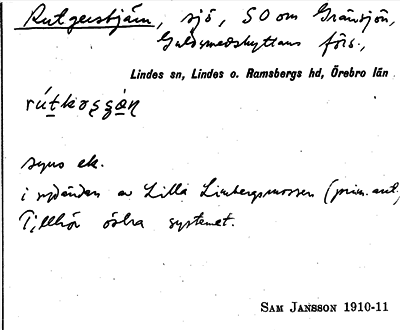 Rutgerstjärn, sjö, SO om Gränsjön,
Guldsmedshyttans förs.,
Lindes sn, Lindes o. Ramsbergs hd, Örebro län
syns ek.
i sydändan av Lilla Limbergsmossen (prim. ant.)
Tillhör östra systemet.
SAM JANSSON 1910-11